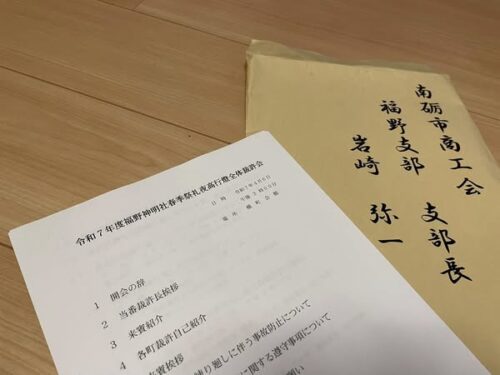 令和7年度福野神明社春季祭礼夜高行燈全体裁許会
日時 令和7年4月6日
場所 横町会館
1 開会の辞
2 当番裁許長挨拶
3 来賓紹介
4 各町裁許自己紹介
来賓挨拶
練り廻しに伴う事故防止について
に関する遵守事項について
願い
南砺市商工会 支部長
福野支部
岩崎 弥一